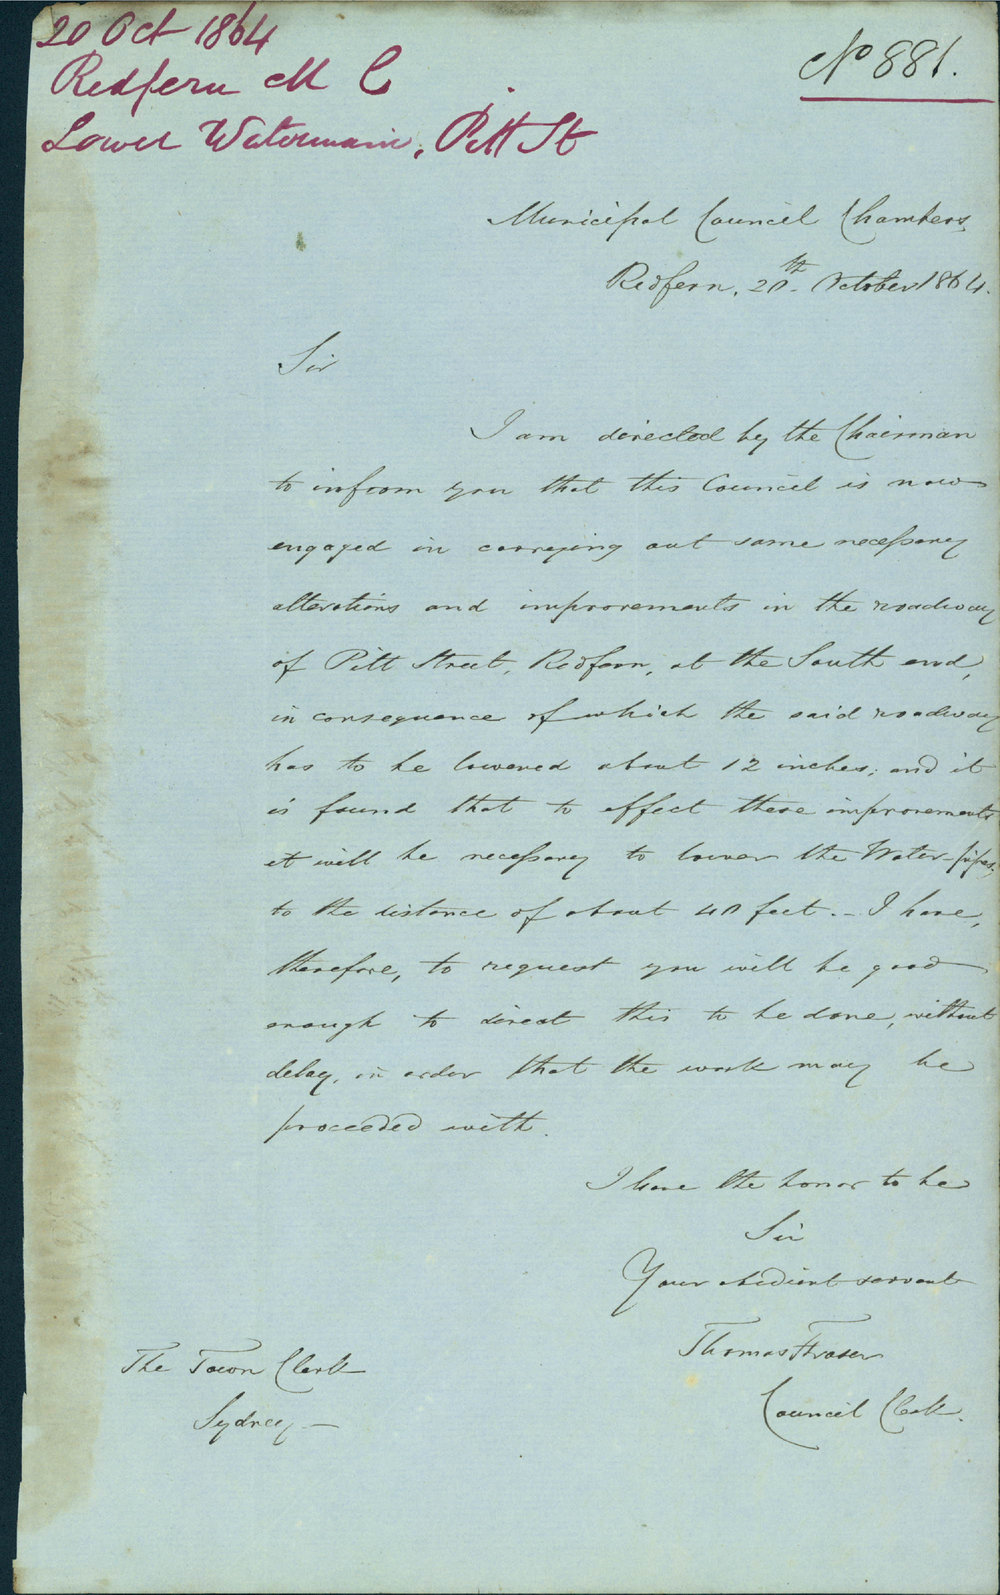 20 Oct 1864
Redfern M C
Lower Watermain, Pitt St
No 881.
Municipal Council Chambers,
Redfern, 20th October 1864.
Sir
I am directed by the Chairman
to inform you that this Council is now
engaged in carrying out some necessary
alterations and improvements in the roadway
of Pitt Street, Redfern, at the South end,
in consequence of which the said roadway
has to be lowered about 12 inches; and it
is found that to effect these improvements
it will be necessary to lower the Water-pipes,
to the distance of about 40 feet. - I have,
therefore, to request you will be good
enough to direct this to be done, without
delay, in order that the work may be
proceeded with.
I have the honor to be
Sir
Your obedient servant
Thomas Fraser
Council Clerk.
The Town Clerk
Sydney -